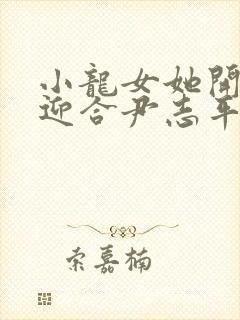 小龍女她開
迎合尹志平
索嘉楠